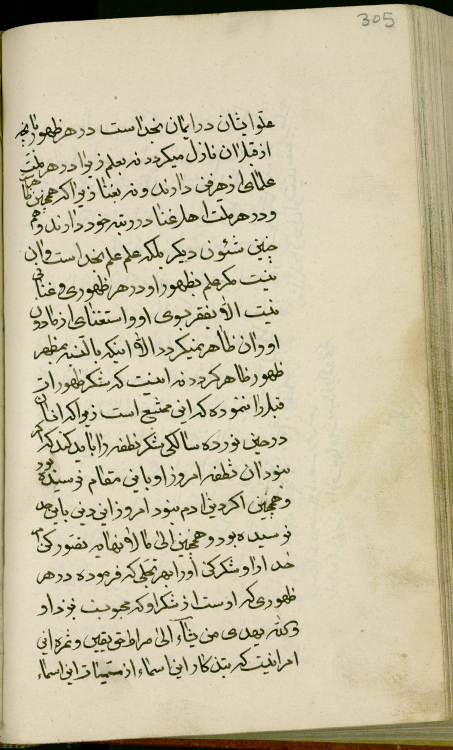 305
علو ایشان در ایمان بخدا است در هر ظهور بآنچه
از قبل ان نازل میگردد نه بعلم زیرا در هر ملت
علمای از هر فن دارند و نه بغنا زیرا که همچنین
و در هر ملت اهل غنا در رتبه خود دارند و هم
چنین شئون دیگر بلکه علم علم بخدا است و ان
نیست مگر علم بظهور او در هر ظهوری و غنا
نیست الا بفقر بسوی او و استغنای از مادون
او و ان ظاهر نمیگردد الا اینکه بالنسبه بمظهر
ظهور ظاهر گردد نه اینست که شکر ظهورات
قبل را ننموده که این ممتنع است زیرا که انسان
در حین نوزده سالگی شکر نطفه را باید کند که اگر
نبود ان نطفه امروز او باین مقام نرسیده بود
و همچنین اگر دین ادم نبود امروز این دین باین حد
نرسیده بود و همچنین الی ما لا نهایه تصور کن امر
خدا را و شکر کن او را بهر تجلی که فرموده در هر
ظهوری که اوست از شکر او که محبوبست نزد او
و کذلک یهدی من یشاء الی صراط حق یقین و ثمره این
امر اینست که بتذکار این اسماء از مسمیات این اسماء